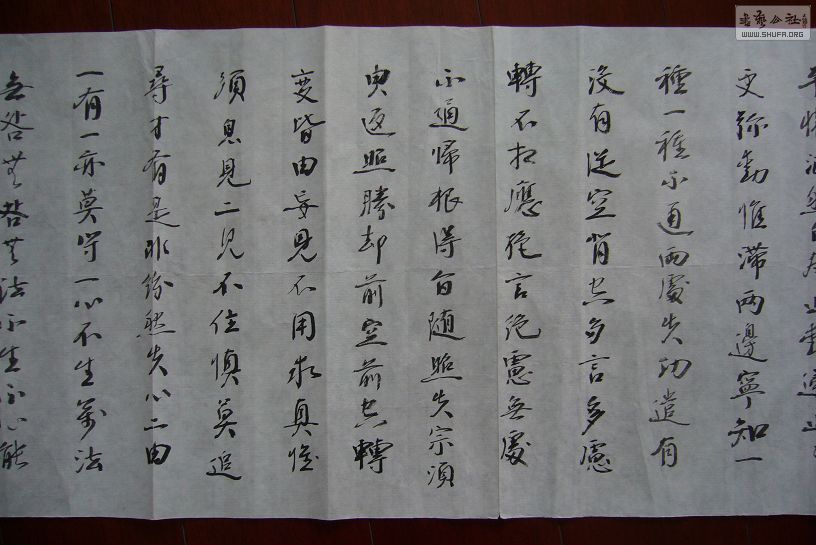 平懷泯然自盡止動歸止
更弥動惟滞兩邊寧知一
種一種不通兩處失功遣有
没有從空背空多言多慮
轉不相應絕言絕慮無處
不通歸根得旨随照失宗須
臾返照勝却前空前空轉
變皆由妄見不用求真惟
須息見二見不住慎莫追
尋才有是非紛然失心二由
一有一亦莫守一心不生萬法
无咎無咎無法不生不心能
書藝公社
WWW.SHUFA.ORG